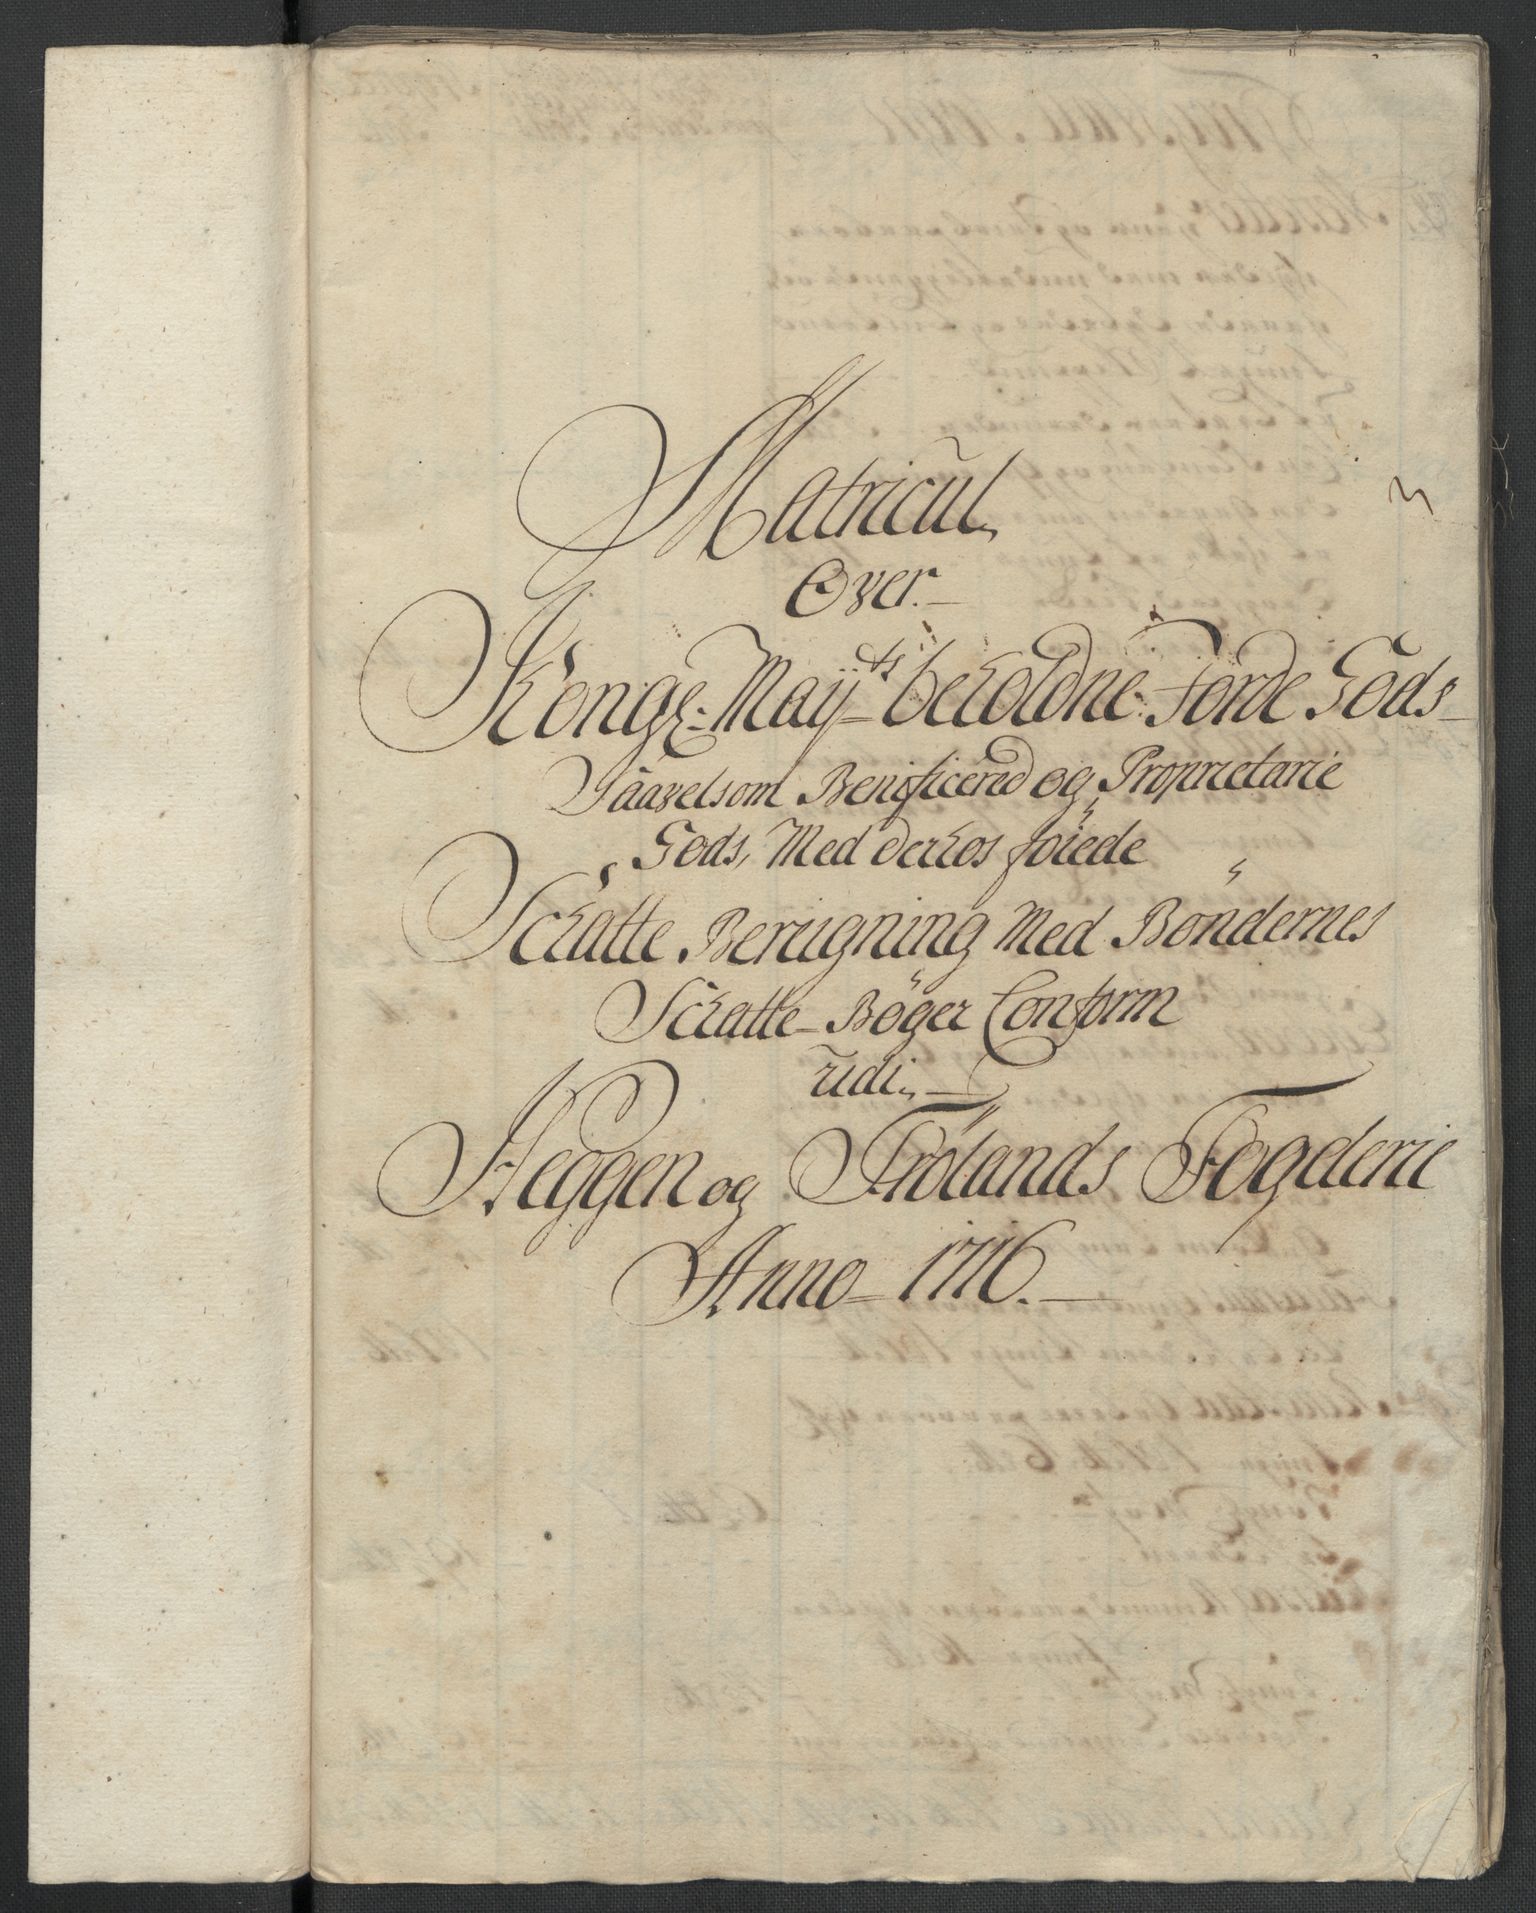 Matricul
Over
Kongl: May.ts beholdne Jorde Gods
Saavelsom Benificered og Proprietarie
Gods, Med derhos föiede
Schatte Bereigning Med Böndernes
Schatte-Böger Conform
udi
Heggen og Frölands Fogderie
Anno 1716.